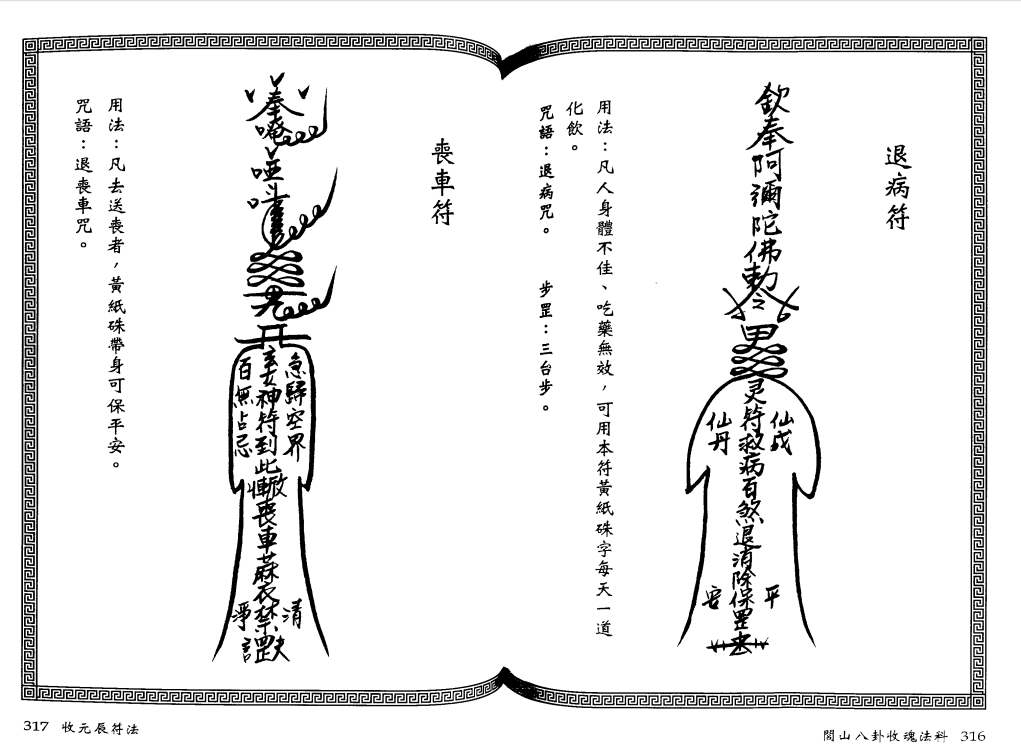 退病符
欽奉阿彌陀佛勅令
灵符救病百煞退消除保罡
仙成
仙丹
平
安
用法：凡人身體不佳、吃藥無效，可用本符黃紙硃字每天一道
化飲。
咒語：退病咒。　步罡：三台步。
閭山八卦收魂法科 316
喪車符
奉唵
哑吽
急歸空界
神符到此
喪車蔴衣禁罡
百無占忌
清
淨
用法：凡去送喪者，黃紙硃帶身可保平安。
咒語：退喪車咒。
317 收元辰符法